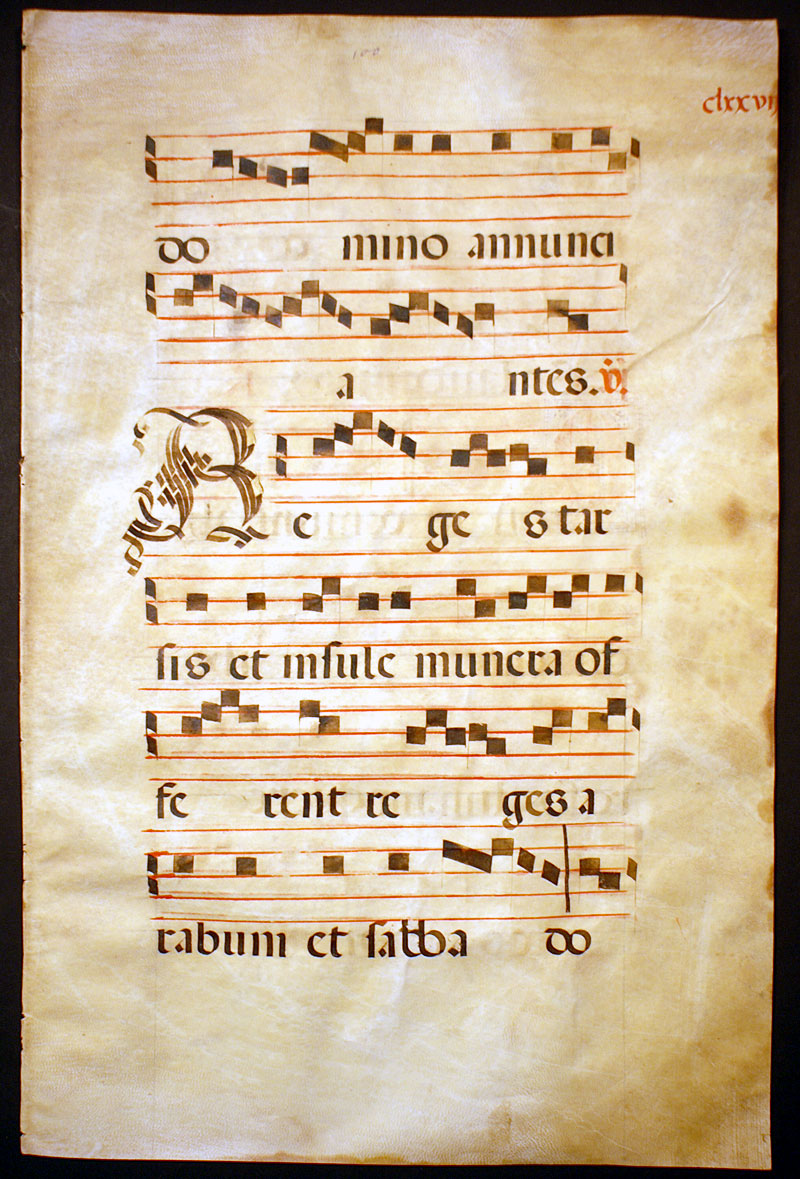 100
clxxvij
do mino annunci
a ntes. ℣.
Re ge star
sis et insule munera of
fe rent re ges a
rabum et sabba do